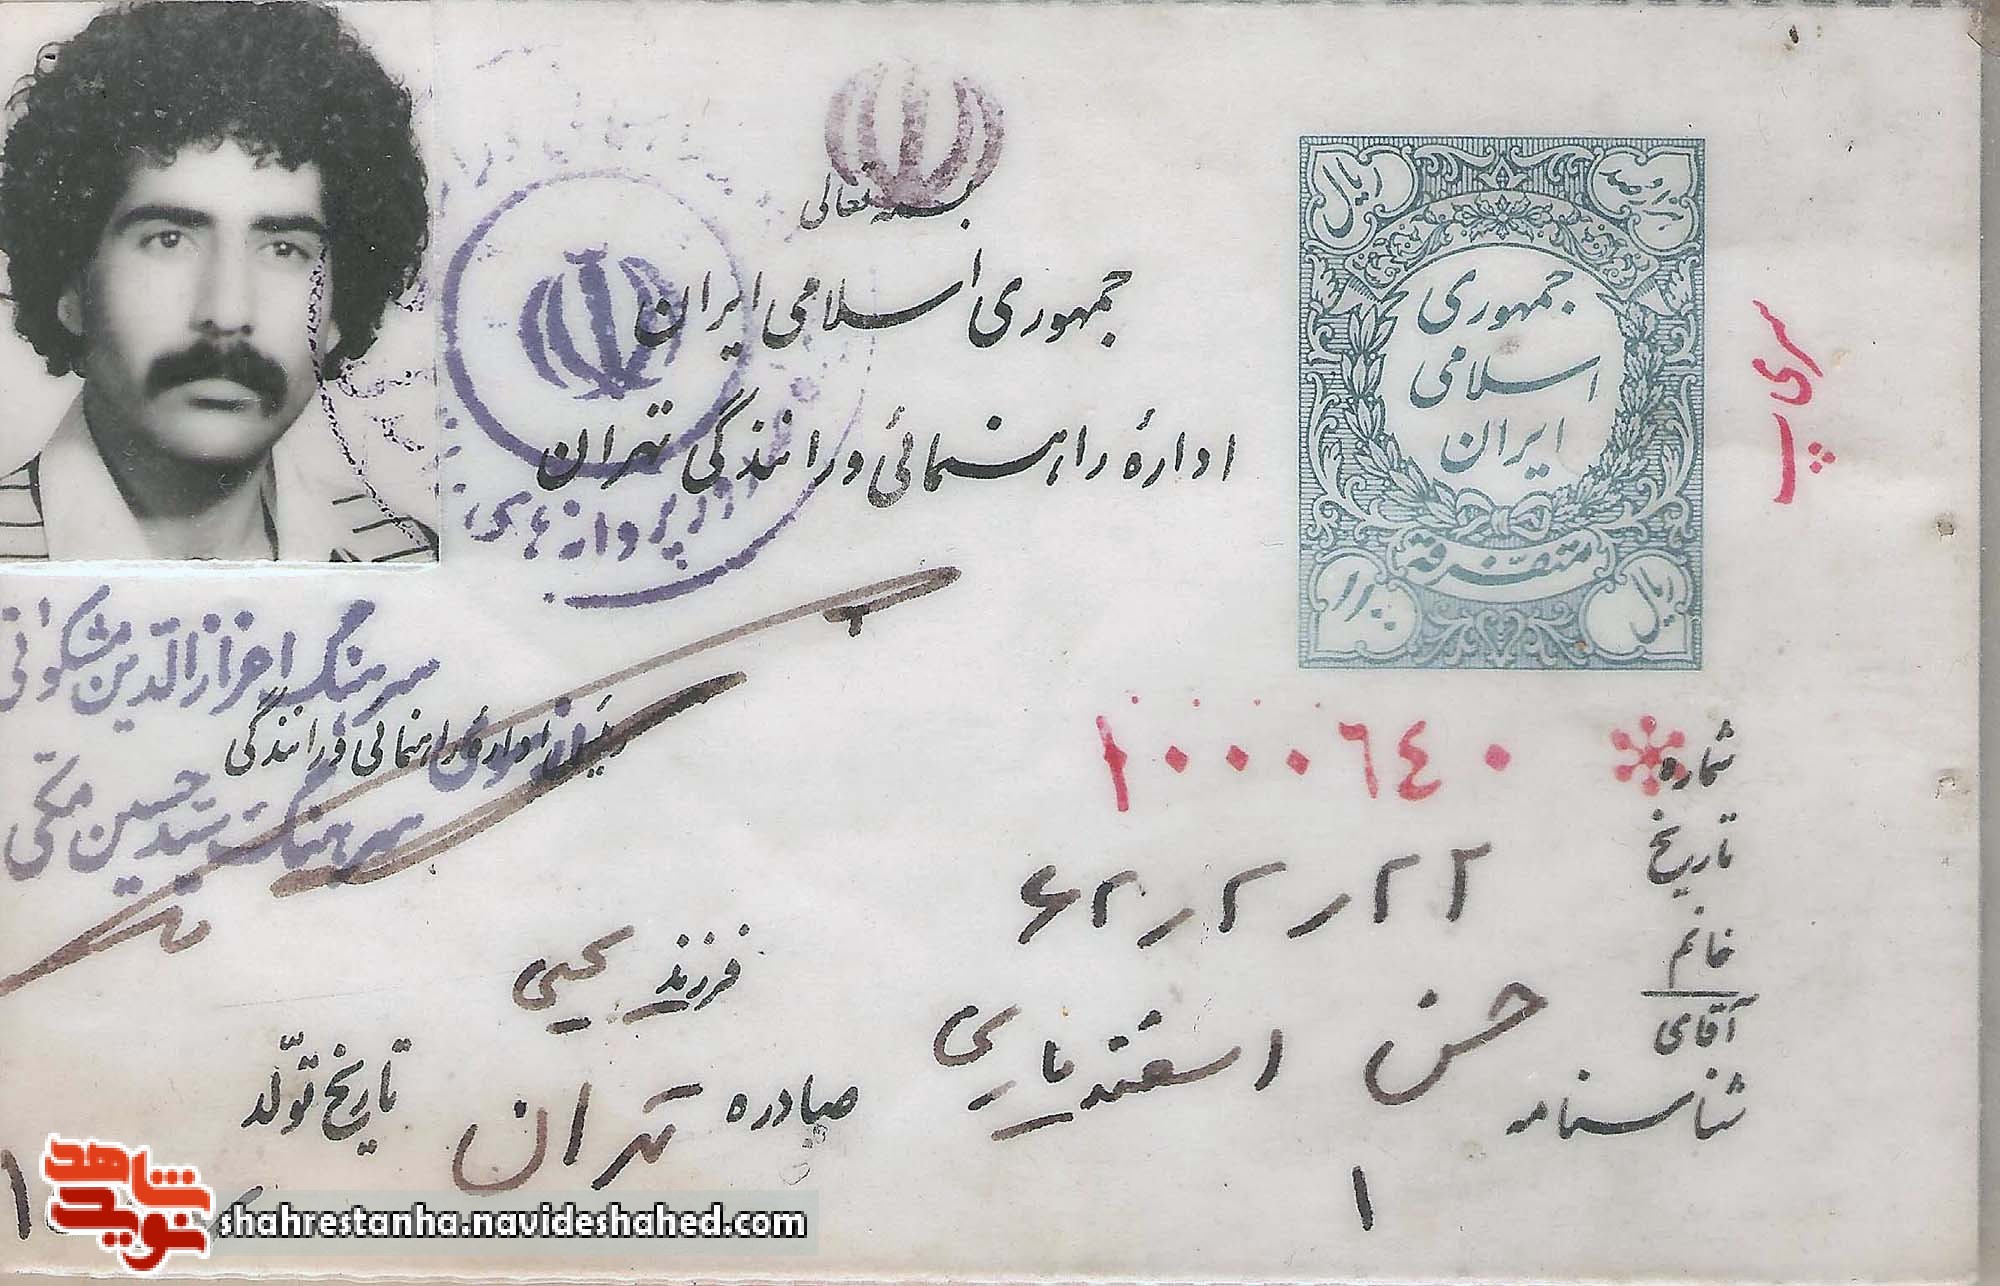 بسمه تعالی
جمهوری اسلامی ایران
ادارهٔ راهنمائی و رانندگی تهران
هزار و صد
ریال
جمهوری
اسلامی
ایران
متفرقه
ریال
سری پ
پروانه های
سرهنگ اعزازالدین مشکواتی
رئیس اداره راهنمائی و رانندگی
سرهنگ سید حسین مکی
شماره ۱۰۰۰۶۴۰
تاریخ ۲۲ر۲ر۶۲
خانم
آقای حسن اسفندیاری فرزند یحیی
شناسنامه ۱ صادره تهران تاریخ تولد
نوید شاهد
shahrestanha.navideshahed.com